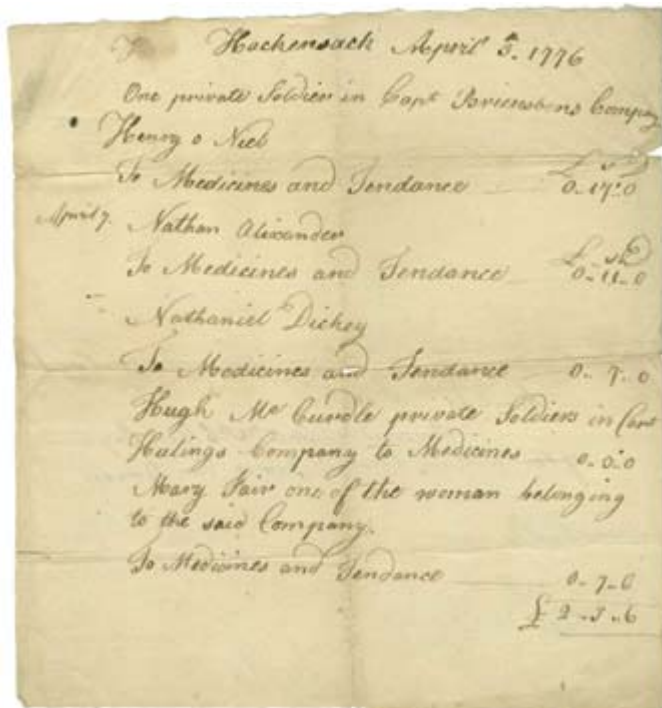 Hackensack April 5. 1776
One private Soldier in Capt Company
Henry o Niel
£ s D
To Medicines and Tendance 0.17.0
April 7. Nathan Alexander
To Medicines and Tendance 0-11-0
Nathaniel Dickey
To Medicines and Tendance 0.. 7.. 0
Hugh Mc Curdle private Soldiers in Capt
Company to Medicines
Mary Fair one of the woman belonging
to the said Company.
To Medicines and Tendance 0-7-6
£ 2